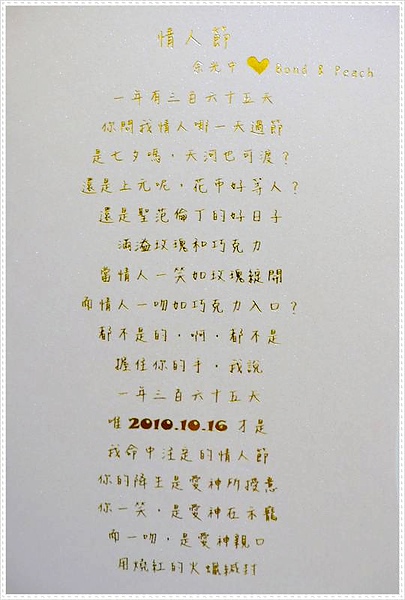 情人節
余光中 ♥ Bond & Peach
一年有三百六十五天
你問我情人哪一天過節
是七夕嗎，天河也可渡？
還是上元呢，花市好等人？
還是聖范倫丁的好日子
滿溢玫瑰和巧克力
當情人一笑如玫瑰綻開
而情人一吻如巧克力入口？
都不是的，啊，都不是
握住你的手，我說
一年三百六十五天
唯 2010.10.16 才是
我命中注定的情人節
你的降生是愛神所授意
你一笑，是愛神在示寵
而一吻，是愛神親口
用燒紅的火蠟緘封